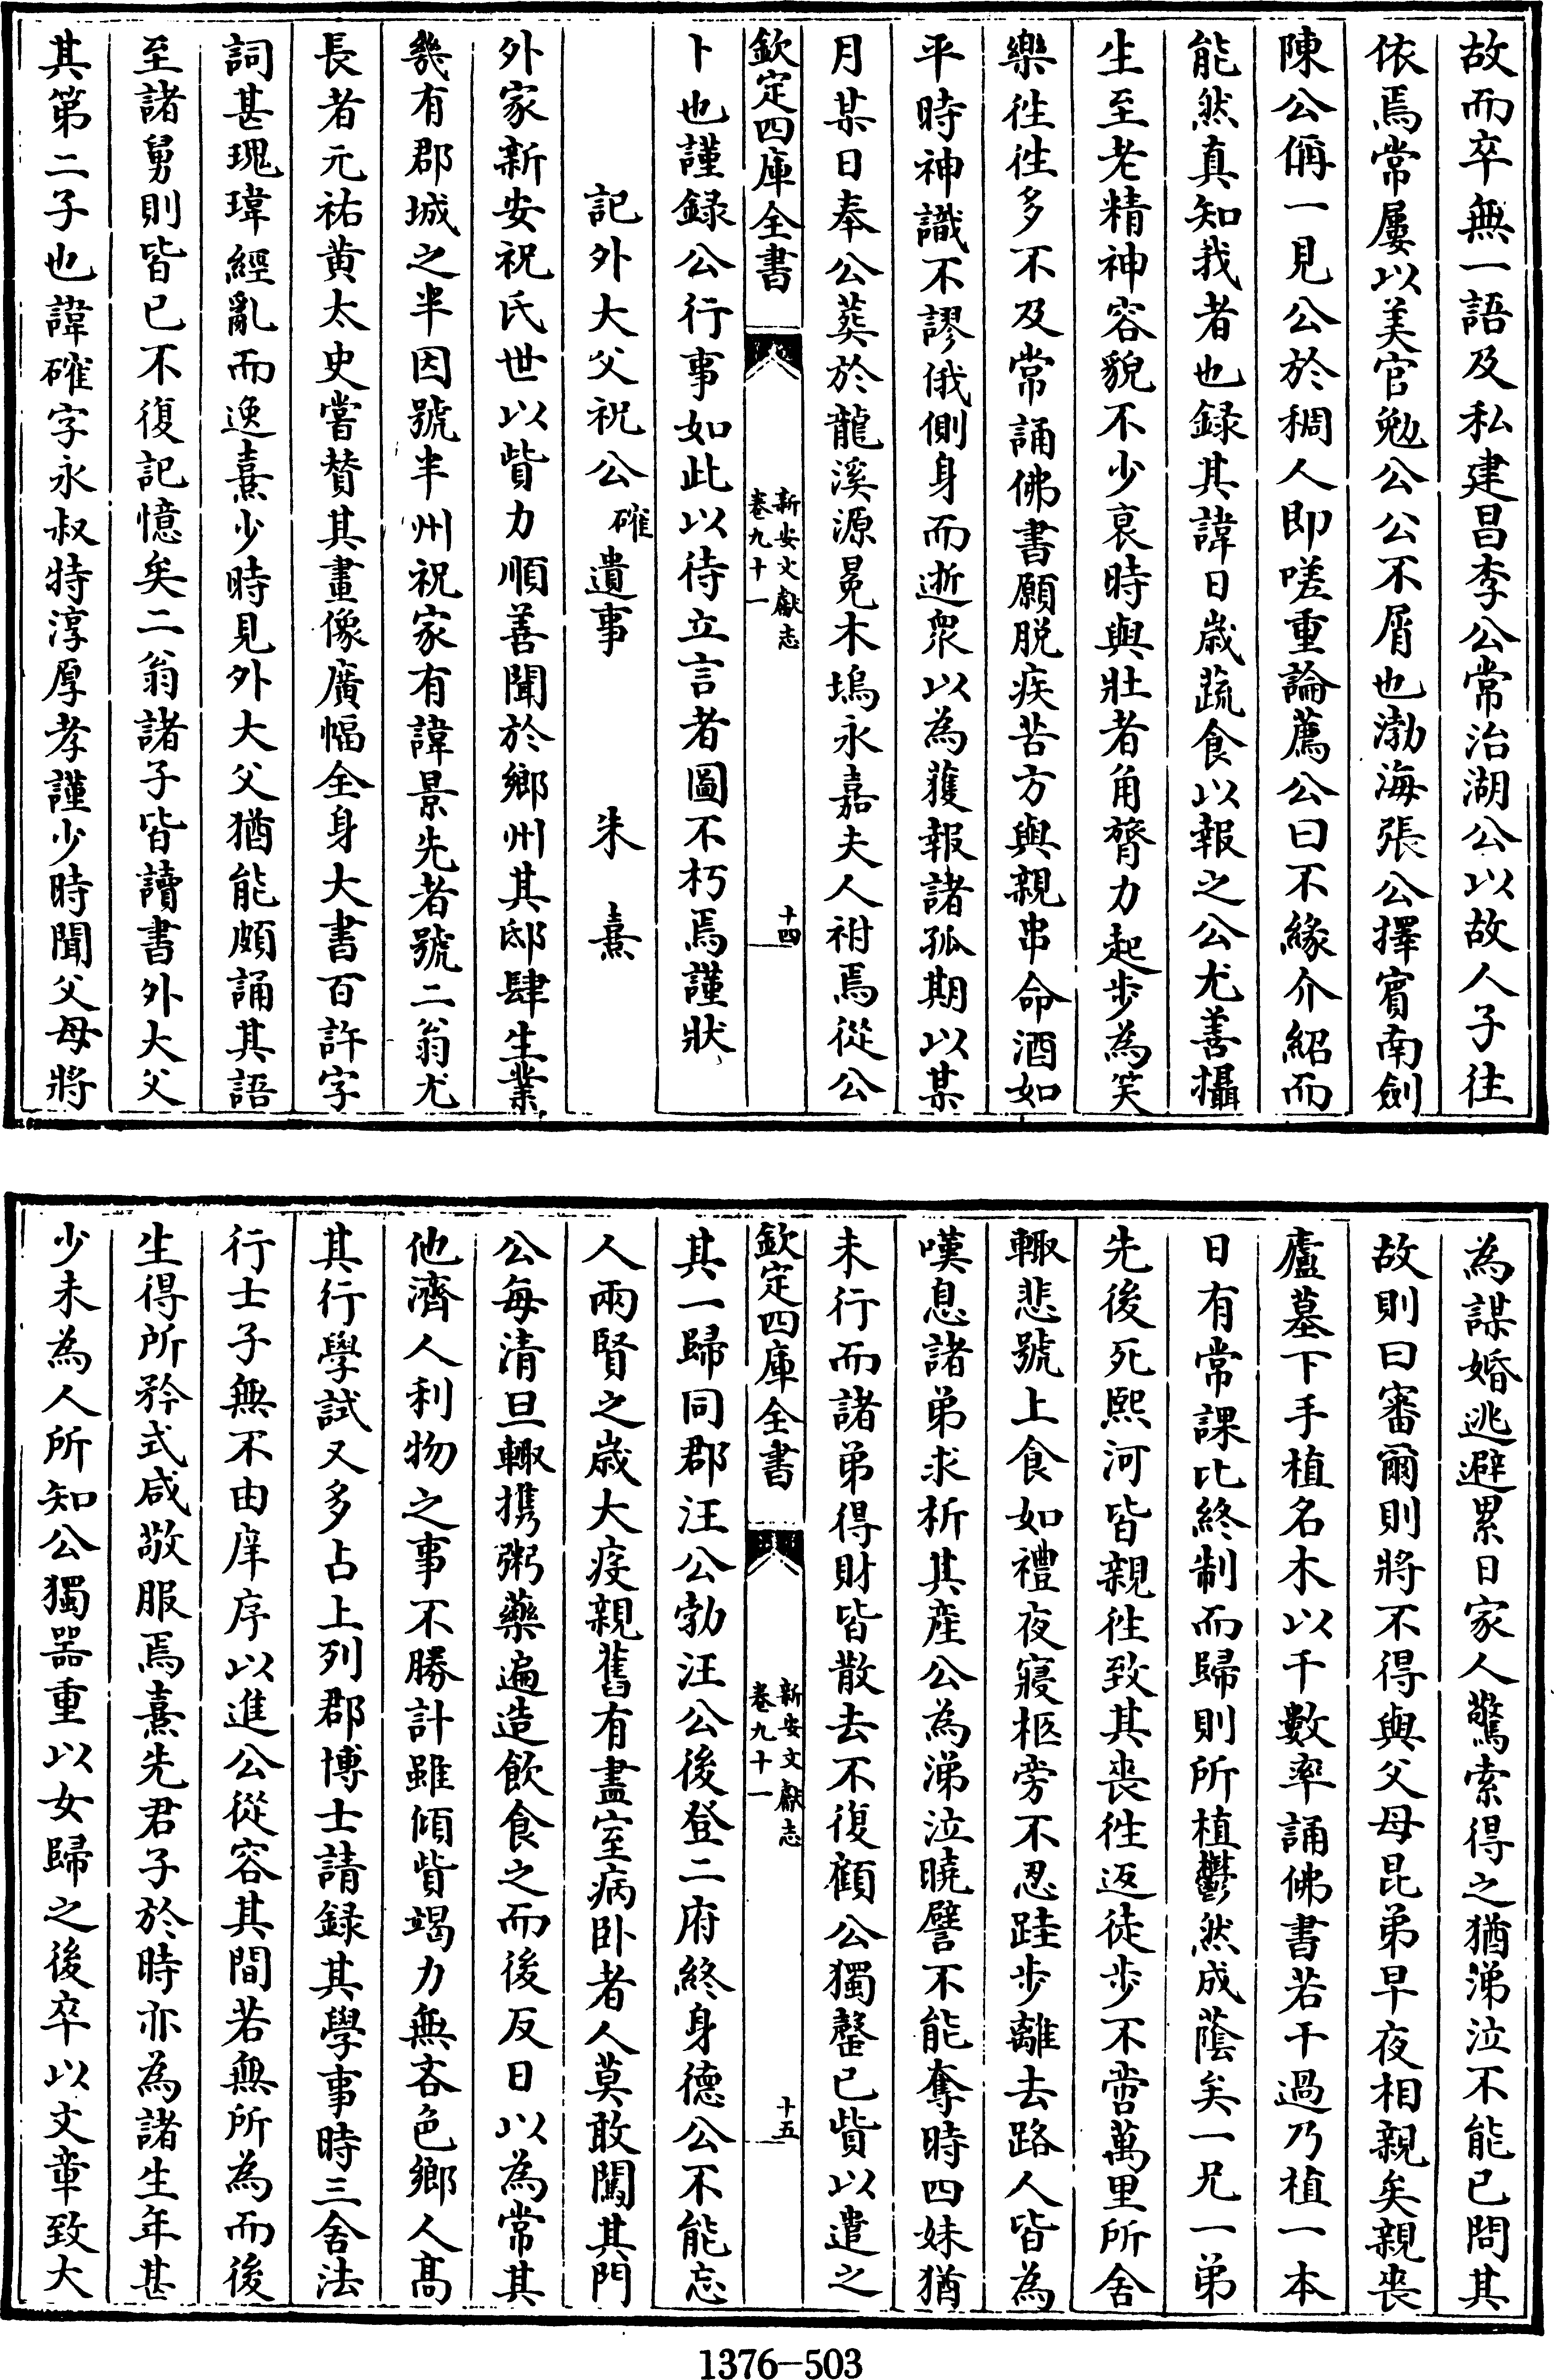 故而卒無一語及私建昌李公常治湖公以故人子往
依焉常屢以美官勉公公不屑也渤海張公擇賓南劍
陳公偁一見公於稠人即嗟重論薦公曰不緣介紹而
能然真知我者也録其諱日歳蔬食以報之公尤善攝
生至老精神容貌不少衰時與壯者角膂力起步為笑
樂徃徃多不及常誦佛書願脱疾苦方與親串命酒如
平時神識不謬俄側身而逝衆以為獲報諸孤期以某
月某日奉公葬於龍溪源晃木塢永嘉夫人祔焉從公
欽定四庫全書
新安文獻志
卷九十一
十四
卜也謹録公行事如此以待立言者圖不朽焉謹狀
記外大父祝公確遺事 朱熹
外家新安祝氏世以貲力順善聞於鄉州其邸肆生業
㡬有郡城之半因號半州祝家有諱景先者號二翁尤
長者元祐黄太史嘗賛其畫像廣幅全身大書百許字
詞甚瑰瑋經亂而逸熹少時見外大父猶能頗誦其語
至諸舅則皆已不復記憶矣二翁諸子皆讀書外大父
其第二子也諱確字永叔特淳厚孝謹少時聞父母將
為謀婚逃避累日家人驚索得之猶涕泣不能已問其
故則曰審爾則將不得與父母昆弟早夜相親矣親喪
廬墓下手植名木以千數率誦佛書若干過乃植一本
日有常課比終制而歸則所植鬱然成蔭矣一兄一弟
先後死熙河皆親徃致其喪徃返徒步不啻萬里所舍
輙悲號上食如禮夜寢柩旁不忍跬步離去路人皆為
嘆息諸弟求析其産公為涕泣曉譬不能奪時四妹猶
未行而諸弟得財皆散去不復顧公獨罄已貲以遣之
欽定四庫全書
新安文獻志
卷九十一
十五
其一歸同郡汪公勃汪公後登二府終身德公不能忘
人兩賢之歳大疫親舊有盡室病卧者人莫敢闖其門
公每清旦輙携粥藥遍造飲食之而後反日以為常其
他濟人利物之事不勝計雖傾貲竭力無吝色鄉人髙
其行學試又多占上列郡博士請録其學事時三舍法
行士子無不由庠序以進公從容其間若無所為而後
生得所矜式咸敬服焉熹先君子於時亦為諸生年甚
少未為人所知公獨噐重以女歸之後卒以文章致大
1376-503